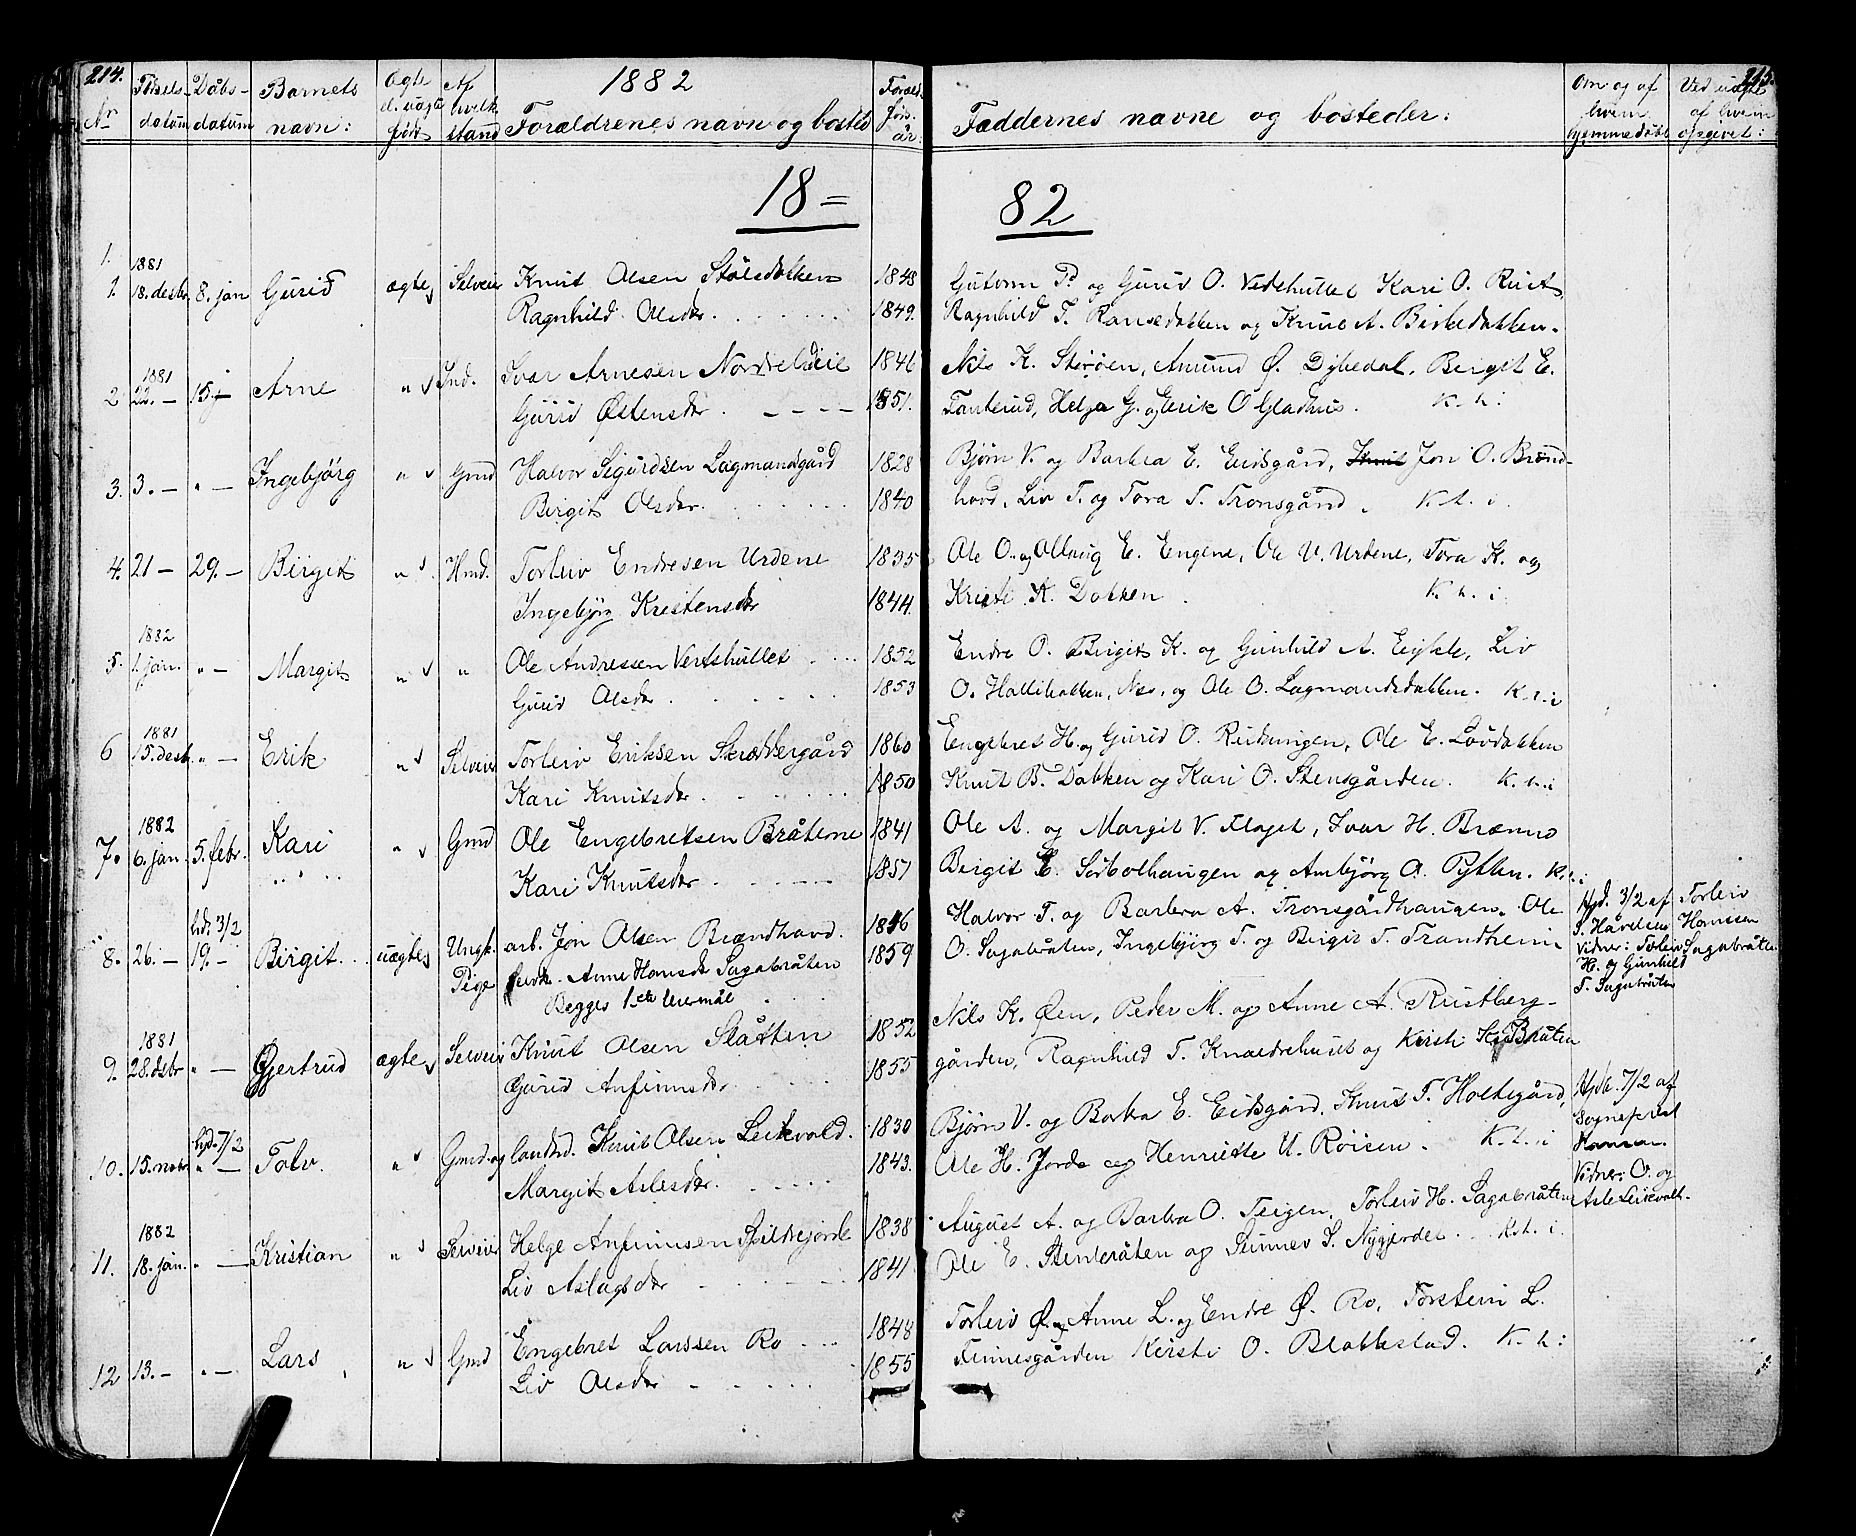 214.
Nr
Fødsels-
datum
Dåbs-
datum
Barnets
navn:
Ægte
el. uægte
født
Af
hvilk.
stand
1882
Forældrenes navn og bosted
Foræld.
føds.
år.
Faddernes navne og bosteder:
Om og af
hvem
hjemmedøbt
215.
Ved uægte
af hvem
opgivet:
18 =
82
1.
1881
1. 18. desbr. 8. jan Gurid ægte Selveier Knut Olsen Stølsdokken 1848 Gutorm P. og Gurid O. Vertshuset Kari O. Rust,
Ragnhild Olsdr. 1849. Ragnhild T. Ransedokken og Knut A. Birkedokken.
1881
2 22. — 15. j — Arne " Ind. Ivar Arnesen Nordrelieie 1846 Nils K. Størøen, Amund Ø. Dybedal. Birgit E.
Gurid Østensdr. 1851. Tanterud, Helga G. og Erik O Gladhus. K. h. i
3. 3. — " — Ingebjørg " Gmd Halvor Sigurdsen Lagmandsgård 1828 Bjørn V. og Barbra E. Eidsgård, Knut Jon O. Brænd-
Birgit Olsdr. 1840 havd, Liv T. og Tora T. Tronsgård. K. h. i.
4. 21 — 29. — Birgit " Hmd. Torleiv Endresen Urdene 1835 Ole O. og Ollaug E. Engene, Ole U. Urdene, Tora K. og
Ingebjør Kristensdr 1844. Kristi K. Dokken. K. h. i.
1882
5. 1. jan. " — Margit " " Ole Andressen Vertshullet 1852 Endre O. Birgit K. og Gunhild A. Eisple, Liv
Gurid Olsdr. 1853 O. Hallibakken, Nes, og Ole O. Lagmandsdokken. K. h. i
1881
6 15. desb. " — Erik " Selveier Torleiv Eriksen Skræddergård 1860 Engebret H. og Gurid O. Rudningen, Ole E. Lordokken
Kari Knutsdr. 1850 Knut B. Dokken og Kari O. Stensgården. K. h. i
1882
7. 6. jan. 5. febr. Kari " Gmd Ole Engebretsen Bråtene 1841 Ole A. og Margit V. Flaget, Ivar H. Brænno
Kari Knutsdr. 1857 Birgit E. Sørbølhaugen og Ambjørg O. Pytten. K. h. i
hd. 3/2
8. 26. — 19. — Birgit. uægte Ungk. arb. Jon Olsen Brændhavd. 1846 Halvor T. og Barbra A. Tronsgårdhaugen. Ole
Pige Anne Hansdr Sagabråten 1859 O. Sagabråten, Ingebjørg T. og Birgit T. Trandheim
Begges 1ste leiermål
Hjd. 3/2 af
S. Håvelsen
vidner: Torleiv
H. og Gunhild
T. Sagabråten
Torleiv
Hanssen
Sagabråten
1881
9. 28. dsbr " — Gjertrud ægte Selveier Knut Olsen Slåtten 1852 Nils K. Øen, Peder M. og Anne A. Rustberg-
Gurid Anfinnsdr. 1855 gården, Ragnhild T. Knædrehuset og Kirsti K. Bråten
hjd. 7/2
10. 15. nobr. " — Tolv. " Gmd. og landhd. Knut Olsen Leikvold. 1830 Bjørn V. og Barbra E. Eidsgård, Knut T. Holtegård,
Margit Aslesdr. 1843. Ole H. Jorde og Henriette U. Røisen. K. h. i
Hjd. 7/2 af
Sognepræst
Hansen.
Vidner: O. og
Asle Leikvoll.
1882
11. 18. jan. " — Kristian " Selveier Helge Anfinnsen Spildrejorde 1838 August A. og Barbra O. Teigen, Torleiv H. Sagabråten
Liv Aslagsdr. 1841. Ole E. Stenbråten og Sunnev S. Nygjerdet. K. h. i.
12 13. — " — Lars " Gmd Engebret Larssen Ro 1848 Torleiv Ø. og Anne L. og Endre Ø. Ro, Torstein L.
Liv Olsdr. 1855 Finnesgården Kirsti O. Blakkestad. K. h. i